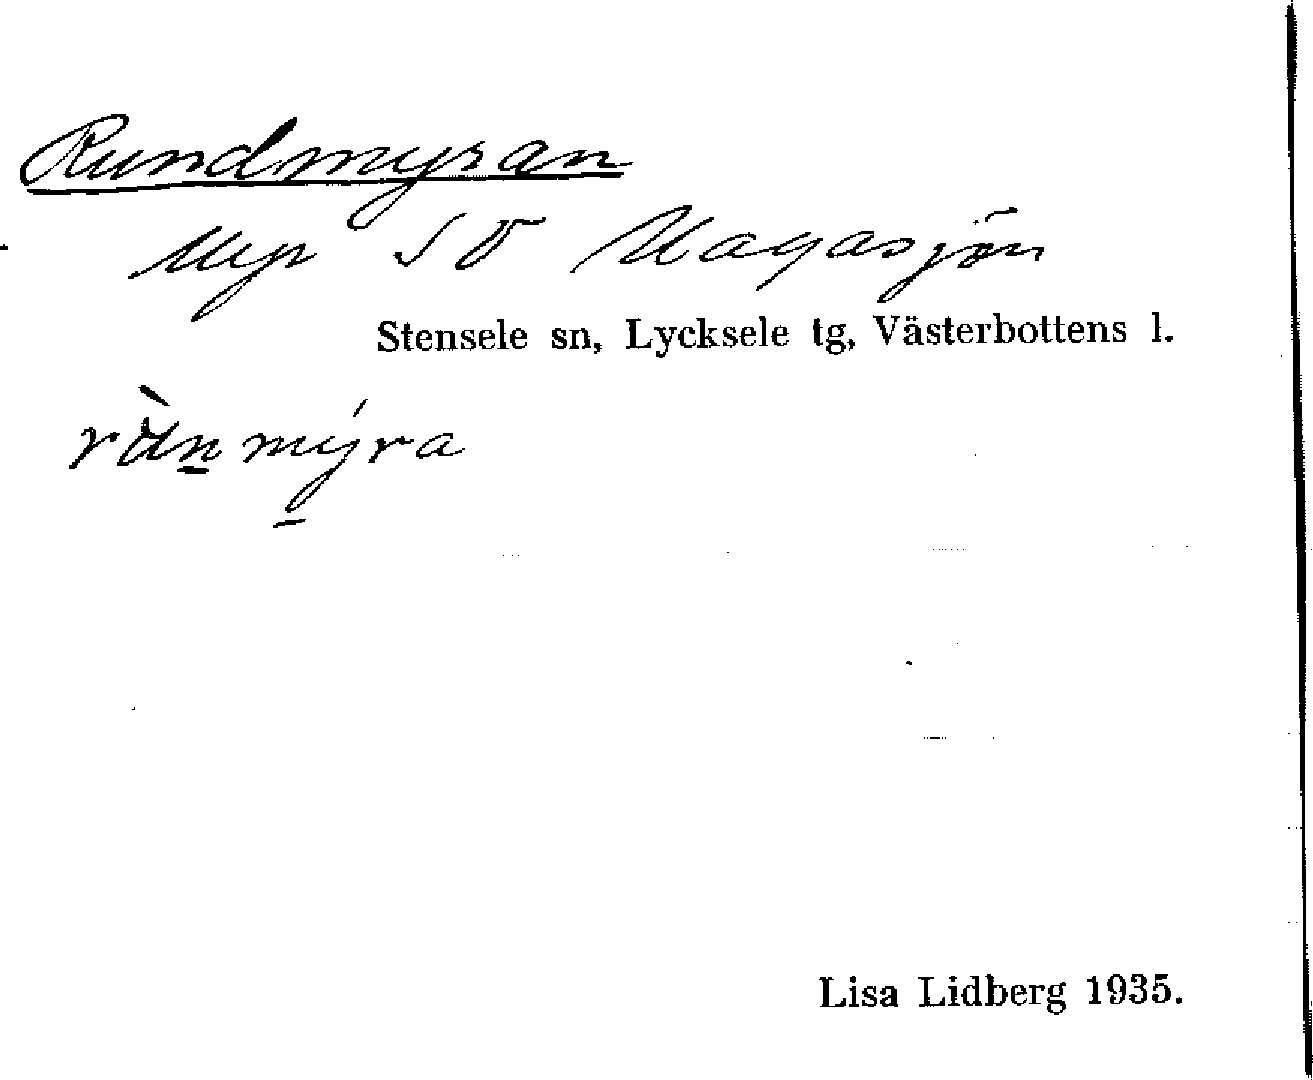 Rundmyran
Myr SO Uagasjön
Stensele sn, Lycksele tg, Västerbottens l.
rùnmýra
Lisa Lidberg 1935.